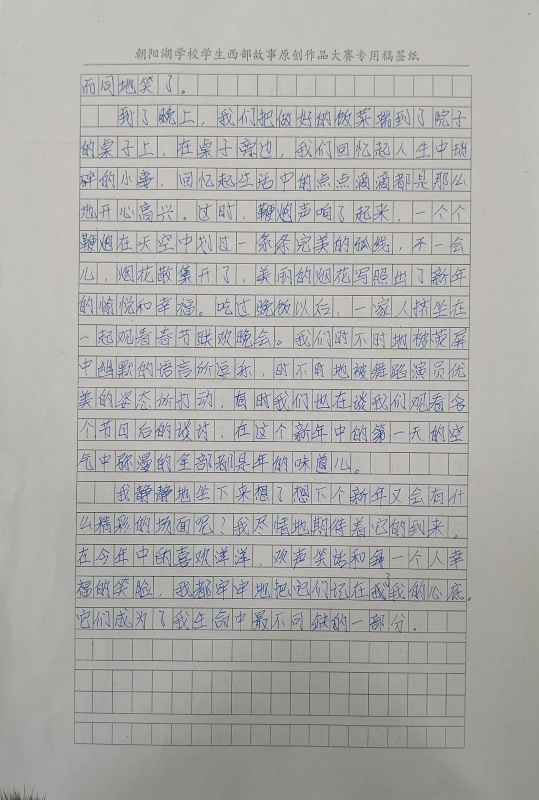 朝阳湖学校学生西部故事原创作品大赛专用稿签纸
而同地笑了。
到了晚上，我们把做好的饭菜端到了院子
的桌子上，在桌子旁边，我们回忆起人生中琐
碎的小事，回忆起生活中的点点滴滴都是那么
地开心高兴。这时，鞭炮声响了起来，一个个
鞭炮在天空中划过一条条完美的弧线，不一会
儿，烟花散集开了，美丽的烟花写照出了新年
的愉悦和幸福。吃过晚饭以后，一家人挤坐在
一起观看春节联欢晚会。我们时不时地被荧屏
中幽默的语言所逗乐，时不时地被舞蹈演员优
美的姿态所打动，有时我们也在谈我们观看各
个节目后的谈讨，在这个新年中的第一天的空
气中弥漫的全部都是年的味道儿。
我静静地坐下来想了想下个新年又会有什
么精彩的场面呢？我尽情地期待着它的到来。
在今年中的喜欢洋洋、欢声笑话和每一个人幸
福的笑脸，我都牢牢地把它们记在我我的心底，
它们成为了我生命中最不可缺的一部分．